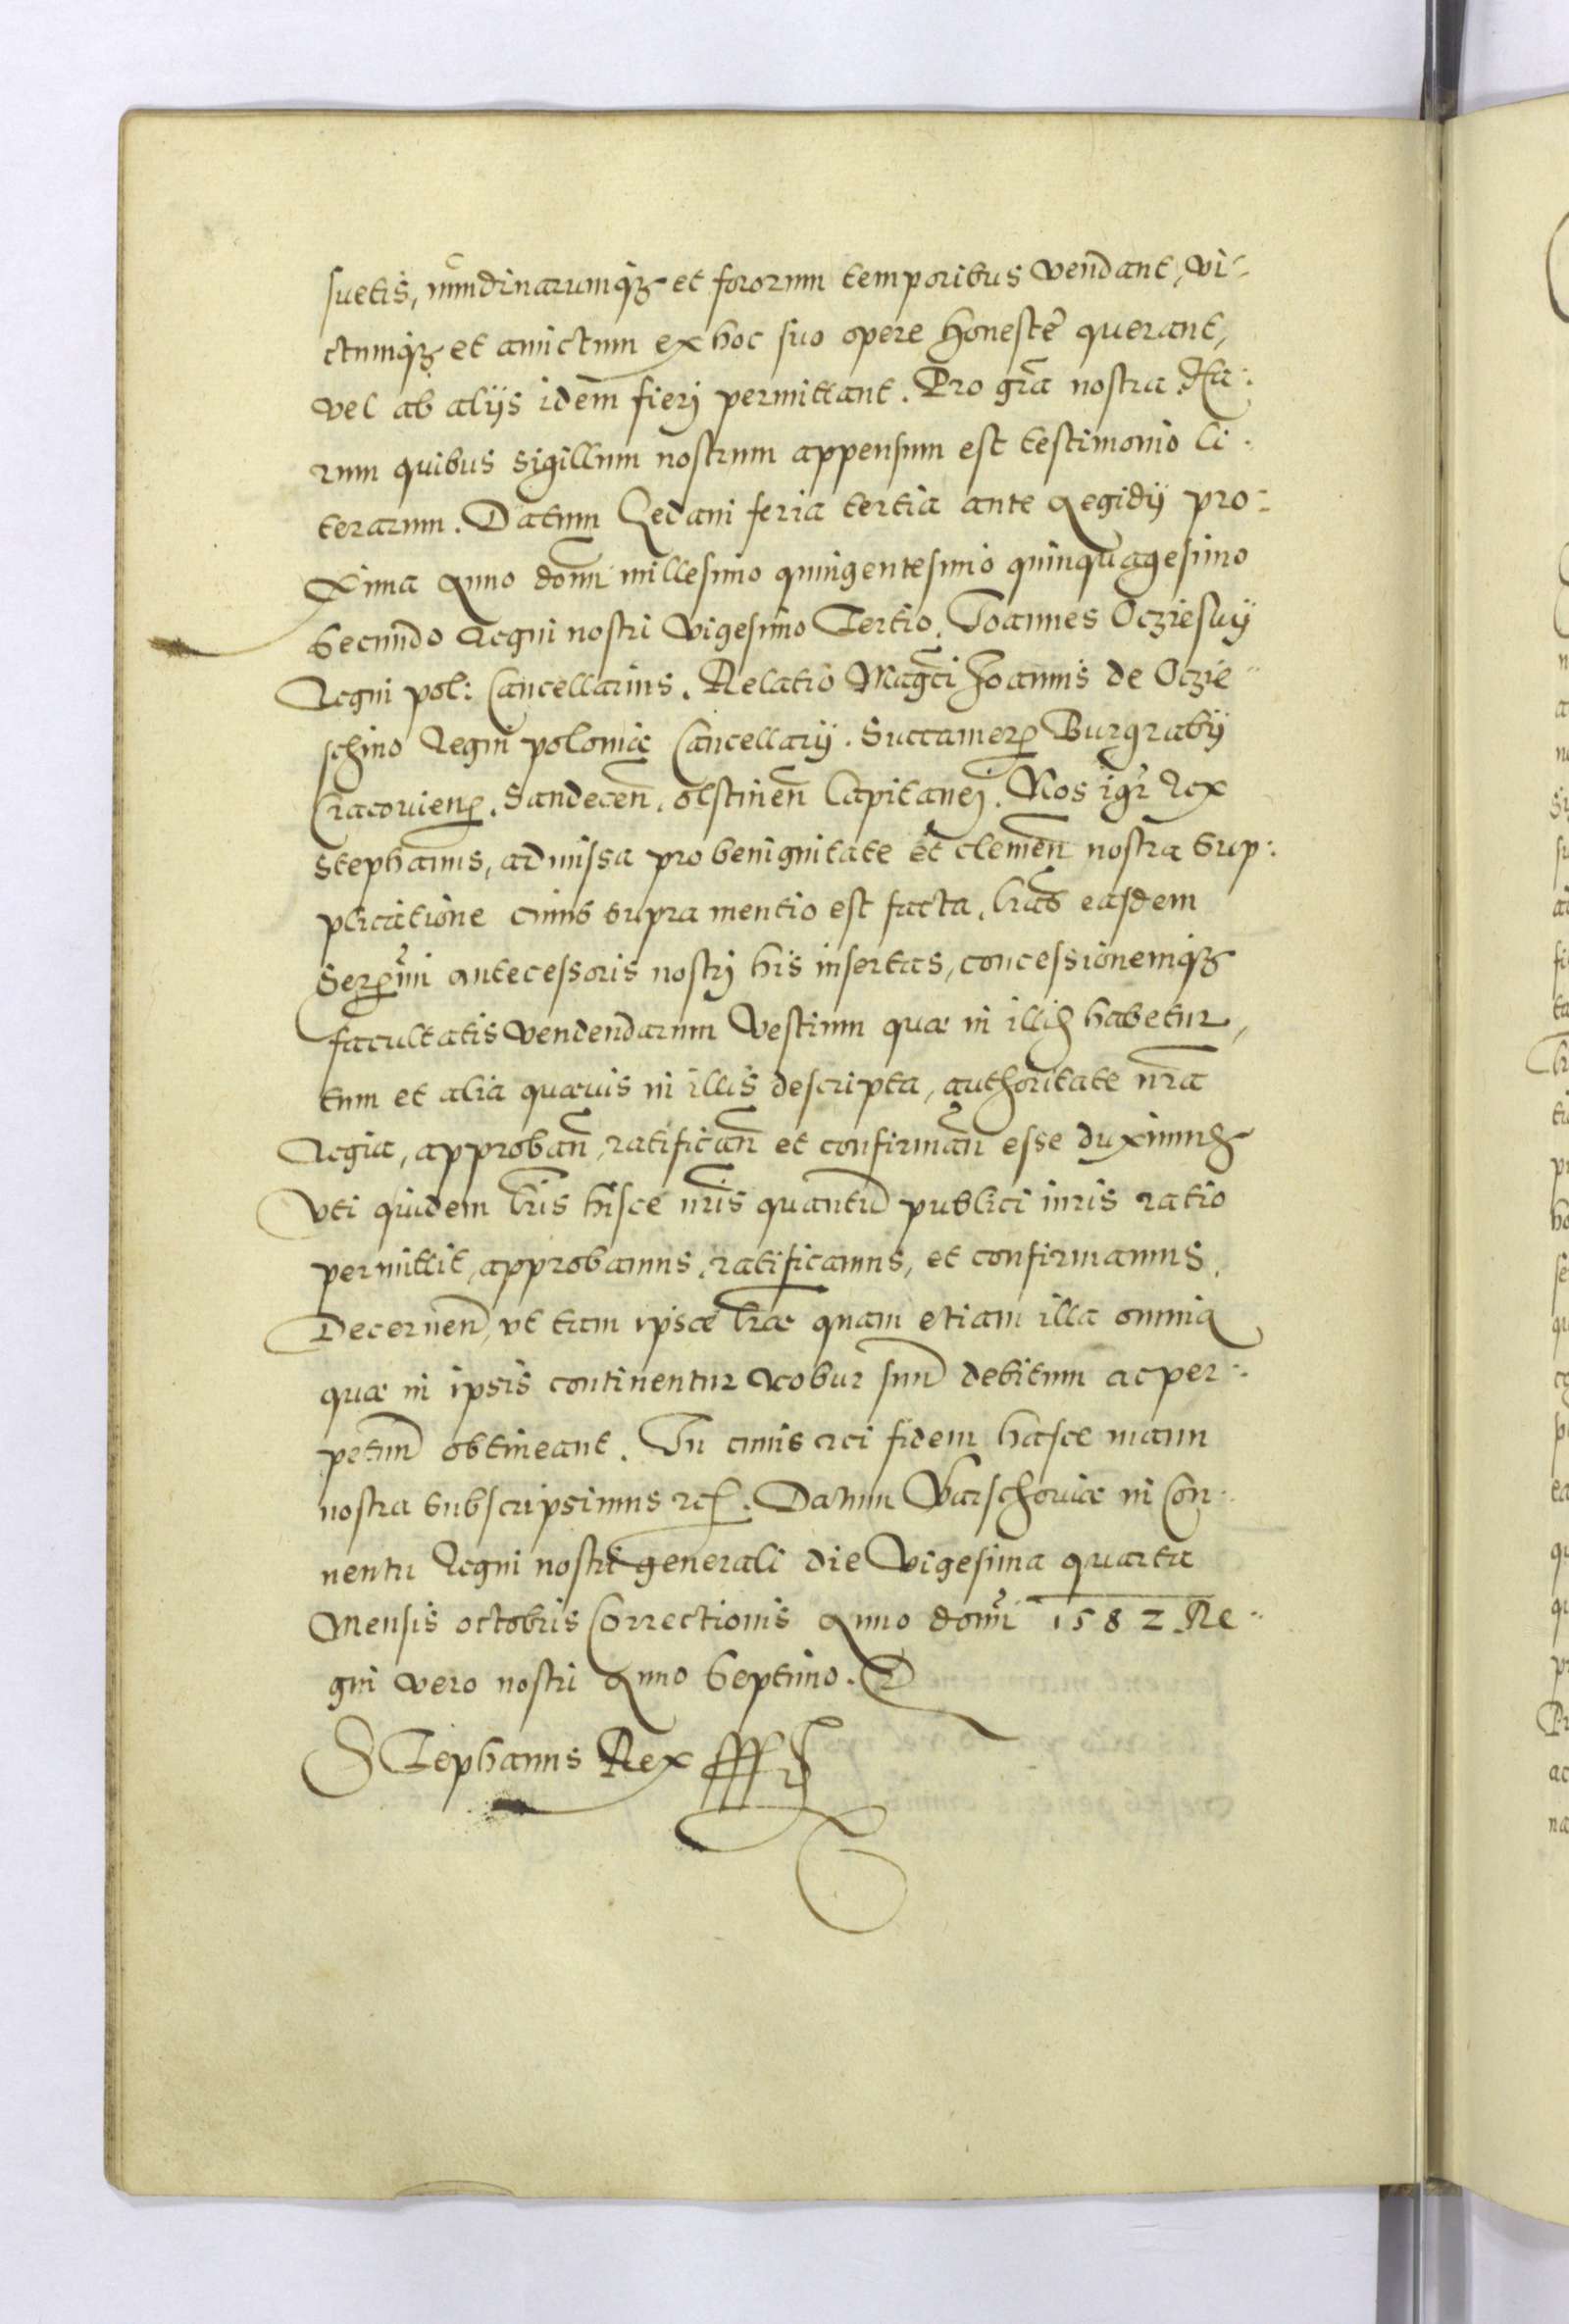 suetis, nundinarumq₃ et fororum temporibus vendant, vi-
ctumq₃ et amictum ex hoc suo opere honeste querant,
vel ab alijs idem fierj permittant. Pro gr̃a nostra. Ha:
rum quibus sigillum nostrum appensum est testimonio li-
terarum. Datum Gedani feria tertia ante Aegidij pro-
xima Anno domĩ millesimo quingentesimo quinquagesimo
Secundo Regni nostri vigesimo Tertio. Joannes Ocziesky
Regni pol: Cancellarius. Relatio Mag̃ci Joannis de Oczie-
schino Regni poloniæ Cancellarij. Succamer. Burgrabij
Cracovien̄. Sandecen̄. olstinen̄ Capitanej. Nos igr̃ Rex
Stephanus, admissa pro benignitate et clemen̄ nostra sup:
plicatione cuius supra mentio est facta. lr̃as easdem
Ser̃mi antecessoris nostrj his insertas, concessionemq₃
facultatis vendendarum vestium quæ in illis habetur,
tum et alia quævis in illis descripta, authoritate nr̃a
Regia, approban̄, ratifican̄ et confirman̄ esse duximus
Vti quidem lr̃is hisce nr̃is quantū publici iuris ratio
permittit, approbamus, ratificamus, et confirmamus.
Decernen̄, vt tam ipsæ lr̃æ quam etiam illa omnia
quæ in ipsis continentur robur suū debitum ac per-
petuū obtineant. In cuius rei fidem hasce manu
nostra subscripsimus etc. Datum Warschoviæ in Con-
uentu Regni nostri generali die Vigesima quarta
Mensis octobris Correctionis Anno domĩ 1582 Re-
gni vero nostri Anno Septimo.
Stephanus Rex